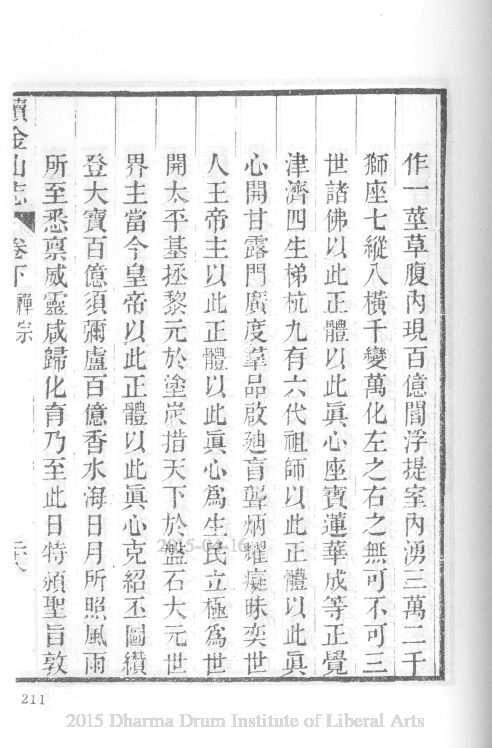 作一莖草腹內現百億閻浮提室內湧三萬二千
獅座七縱八橫千變萬化左之右之無可不可三
世諸佛以此正體以此眞心座寶蓮華成等正覺
津濟四生梯杭九有六代祖師以此正體以此眞
心開甘露門廣度羣品啟廸盲聾炳燿癡昧奕世
人王帝主以此正體以此眞心爲生民立極爲世
開太平基拯黎元於塗炭措天下於盤石大元世
界主當今皇帝以此正體以此眞心克紹丕圖纘
登大寶百億須彌盧百億香水海日月所照風雨
所至悉稟威靈咸歸化育乃至此日特頒聖旨敦
續金山志
卷下
禪宗
2015-04-16
211
2015 Dharma Drum Institute of Liberal Arts